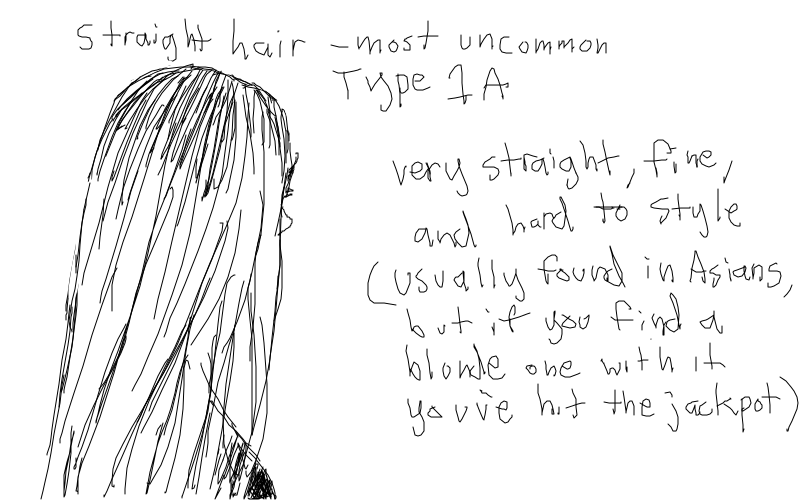 straight hair - most uncommon
Type 1A
very straight, fine,
and hard to style
(usually found in Asians,
but if you find a
blonde one with it
you've hit the jackpot)